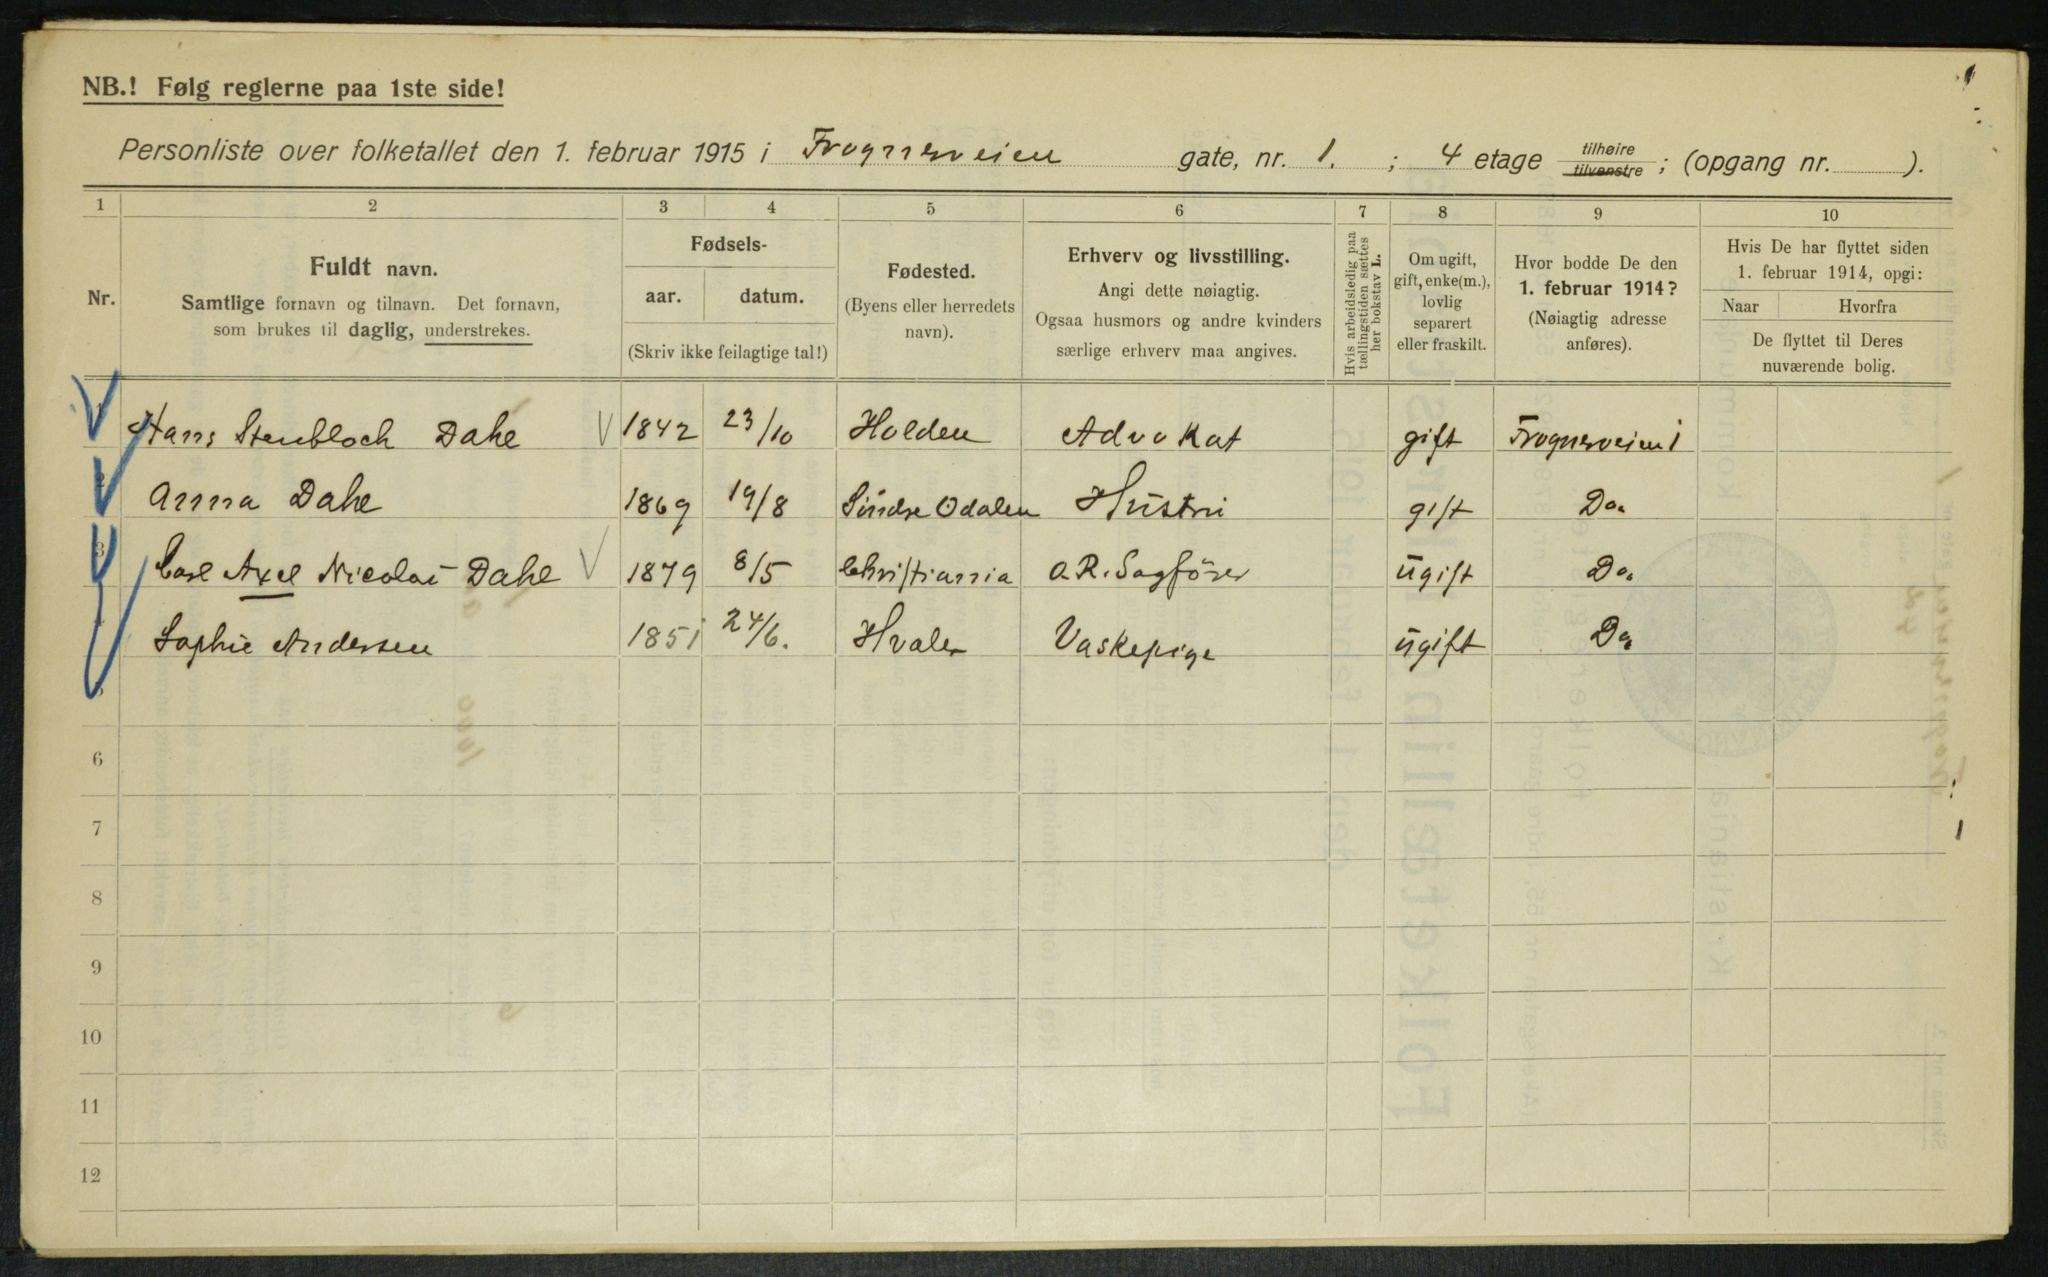 NB.! Følg reglerne paa 1ste side!
Personliste over folketallet den 1. februar 1915 i Frognerveien gate, nr. 1. ; 4 etage tilhøire tilvenstre ; (opgang nr. ).
1 2 3 4 5 6 7 8 9 10
Nr.
Fuldt navn.
Samtlige fornavn og tilnavn. Det fornavn,
som brukes til daglig, understrekes.
Fødsels-
aar. datum.
(Skriv ikke feilagtige tal!)
Fødested.
(Byens eller herredets
navn).
Erhverv og livsstilling.
Angi dette nøiagtig.
Ogsaa husmors og andre kvinders
særlige erhverv maa angives.
Hvis arbeidsledig paa
tællingstiden sættes
her bokstav L.
Om ugift,
gift, enke(m.),
lovlig
separert
eller fraskilt.
Hvor bodde De den
1. februar 1914?
(Nøiagtig adresse
anføres).
Hvis De har flyttet siden
1. februar 1914, opgi:
Naar Hvorfra
De flyttet til Deres
nuværende bolig.
1 Hans Stenbloch Dahl 1842 23/10 Holden Advokat gift Frognerveien 1
2 Anna Dahl 1869 19/8 Söndre Odalen Hustru gift Do.
3 Carl Axel Nicolai Dahl 1879 8/5 Christiania O.R. Sagfører ugift Do.
4 Sophie Andersen 1851 24/6. Hvaler Vaskepige ugift Do.
5
6
7
8
9
10
11
12